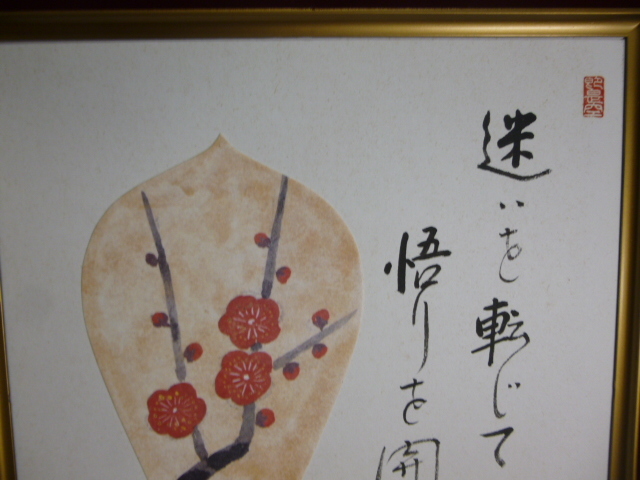 迷いを転じて
悟りを開